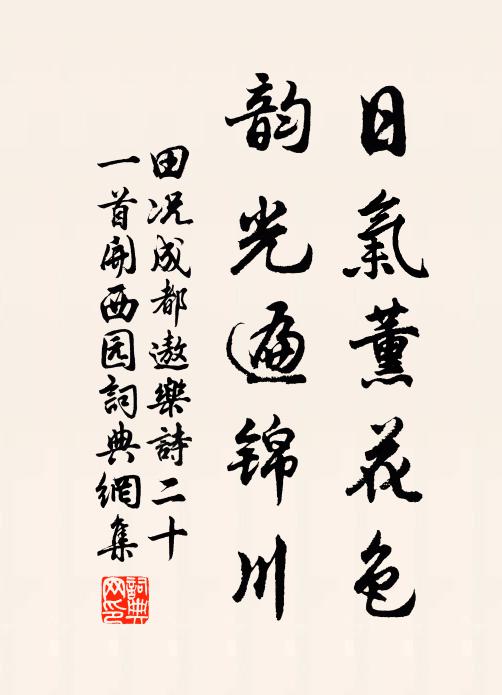 日氣薰花色
韵光遍锦川
田况成都遨樂詩二十
一首開西园詞典網集
詞典
网印